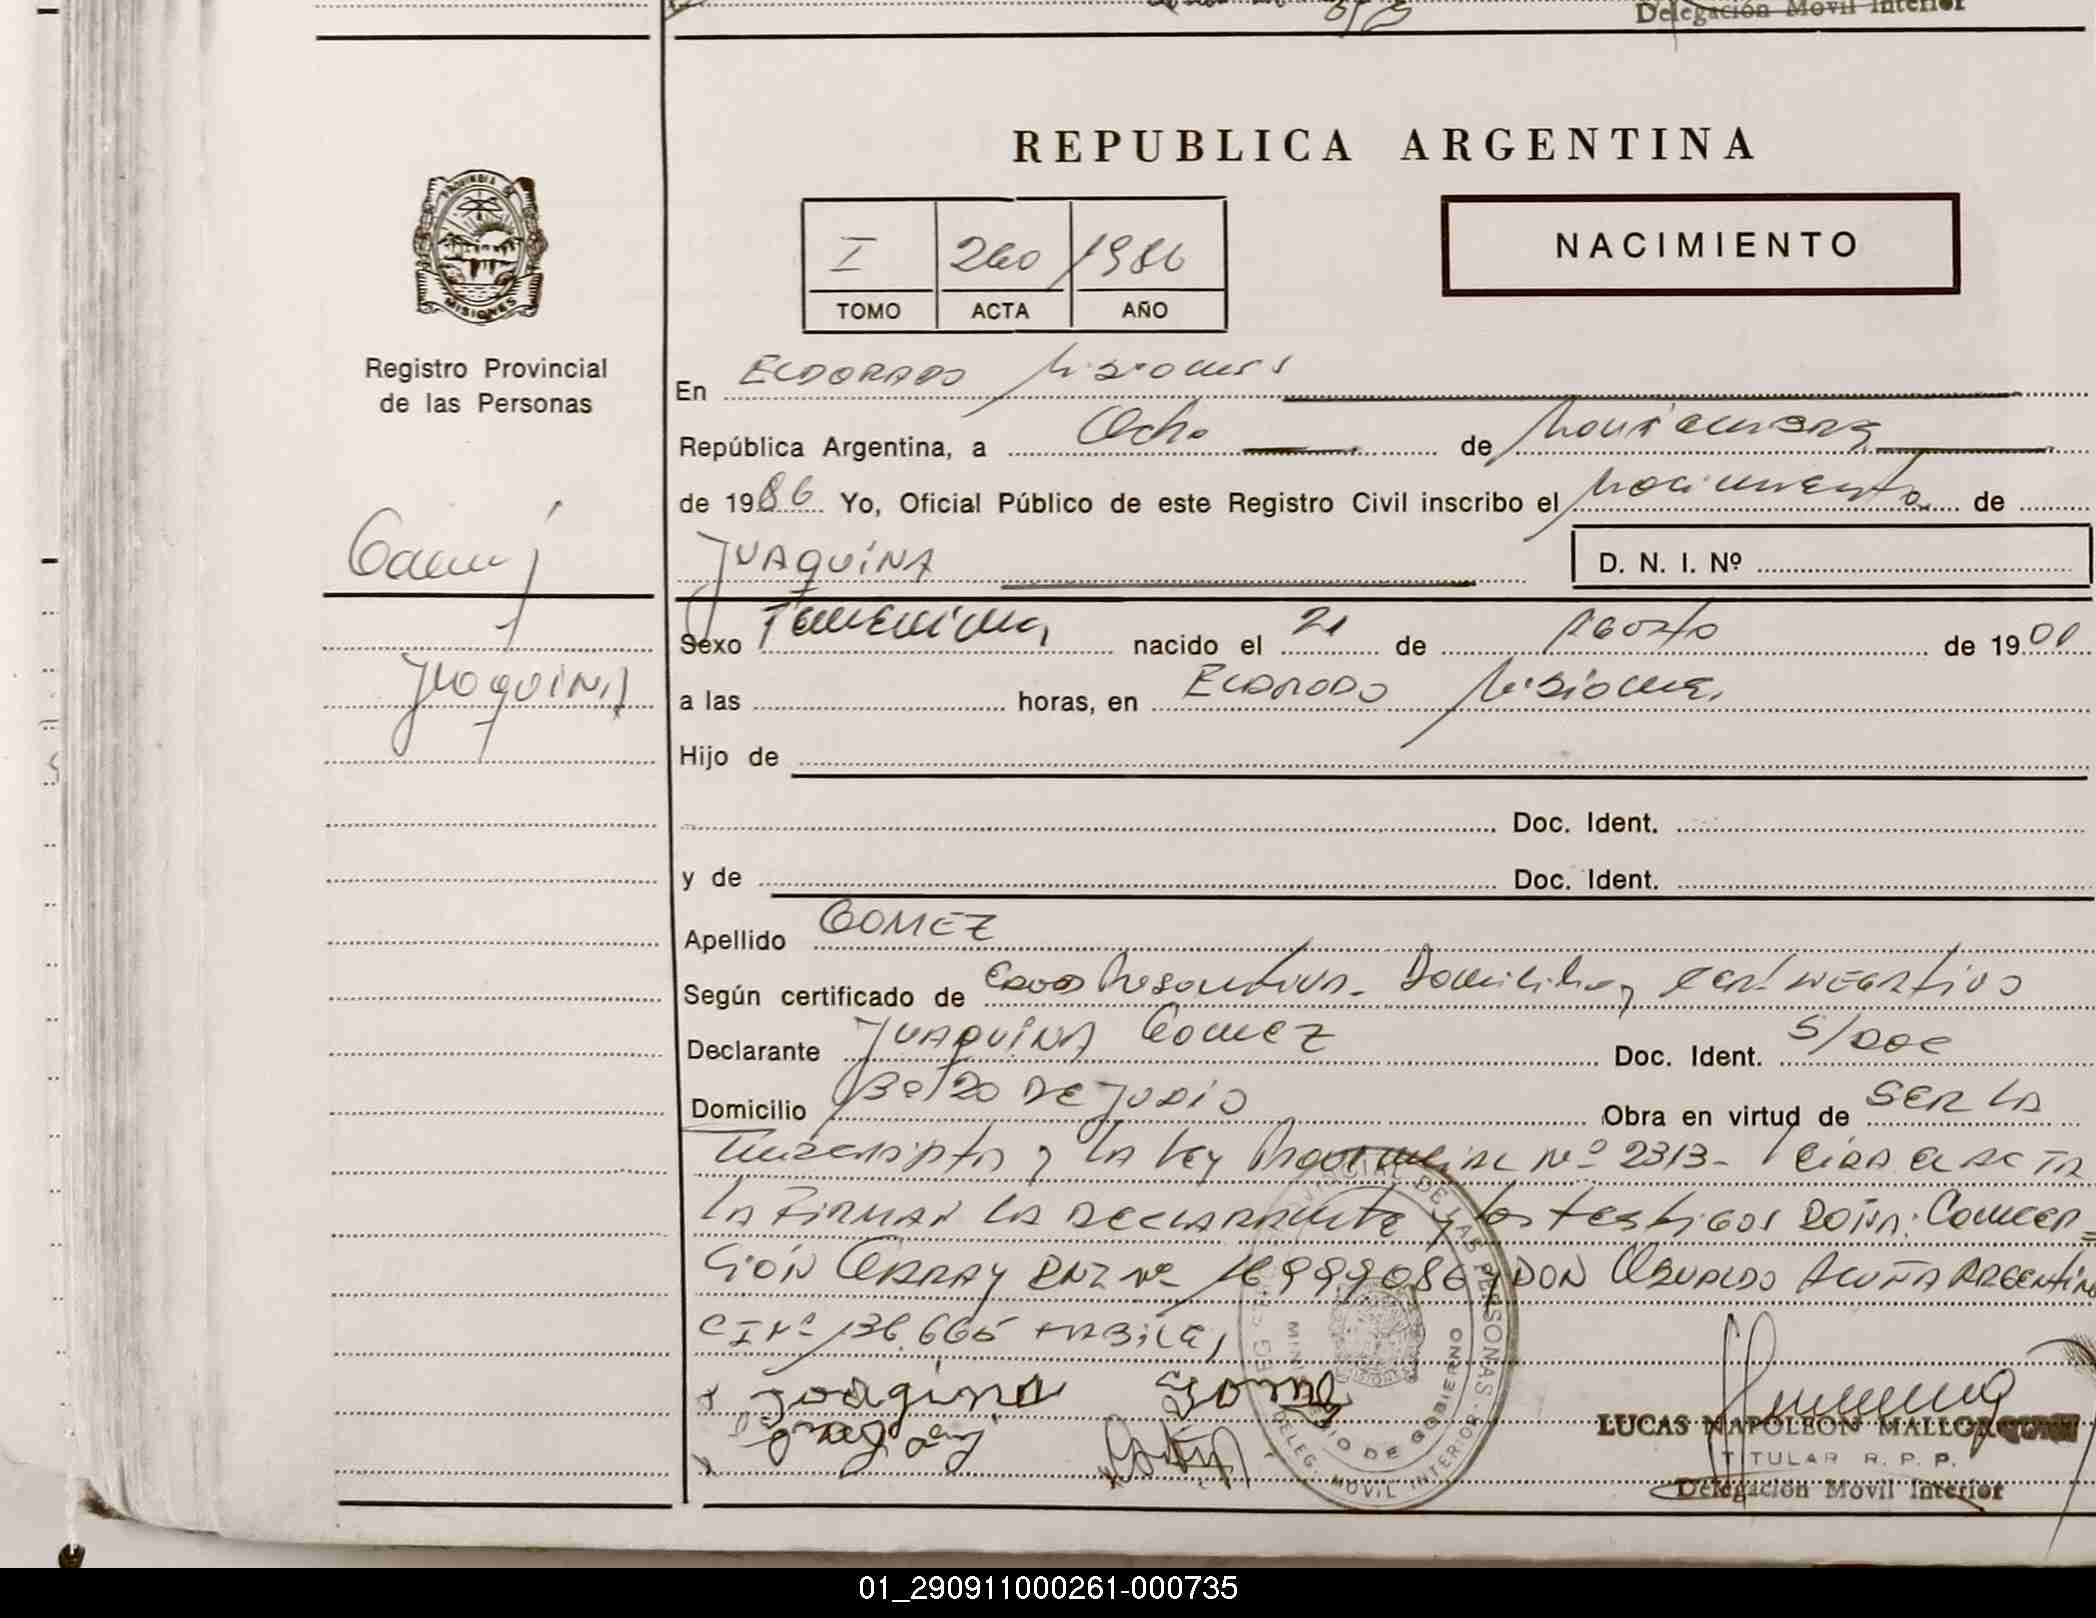 Delegación Movil Interior
REPUBLICA ARGENTINA
PROVINCIA DE
MISIONES
I 260 1986
TOMO ACTA AÑO
NACIMIENTO
Registro Provincial
de las Personas
En ELDORADO Misiones
República Argentina, a Ocho de Noviembre
de 1986 Yo, Oficial Público de este Registro Civil inscribo el Nacimiento de
JUAQUINA D. N. I. Nº
Gomez
JUAQUINA
Sexo Femenina nacido el 21 de Agosto de 1901
a las horas, en ELDORADO Misiones
Hijo de
Doc. Ident.
y de Doc. Ident.
Apellido GOMEZ
Según certificado de Domicilio y Cert NEGATIVO
Declarante JUAQUINA Gomez Doc. Ident. S/DOC
Domicilio Bº 20 DE JUNIO Obra en virtud de SER LA
Inscripta y LA Ley Provincial Nº 2313- LEIDA EL ACTA
LA FIRMAN LA DECLARANTE y los testigos DOÑA: Concep=
CIÓN DNI Nº 16999086 y DON OSVALDO ACUÑA ARGENTINO
CI Nº 136.665 HABILES
Joaquina Gomez
LUCAS NAPOLEON MALLORQUIN
TITULAR R. P. P.
Delegación Movil Interior
PROVINCIAL DE LAS PERSONAS
MINISTERIO DE GOBIERNO
DELEG. MOVIL INTERIOR
01_290911000261-000735